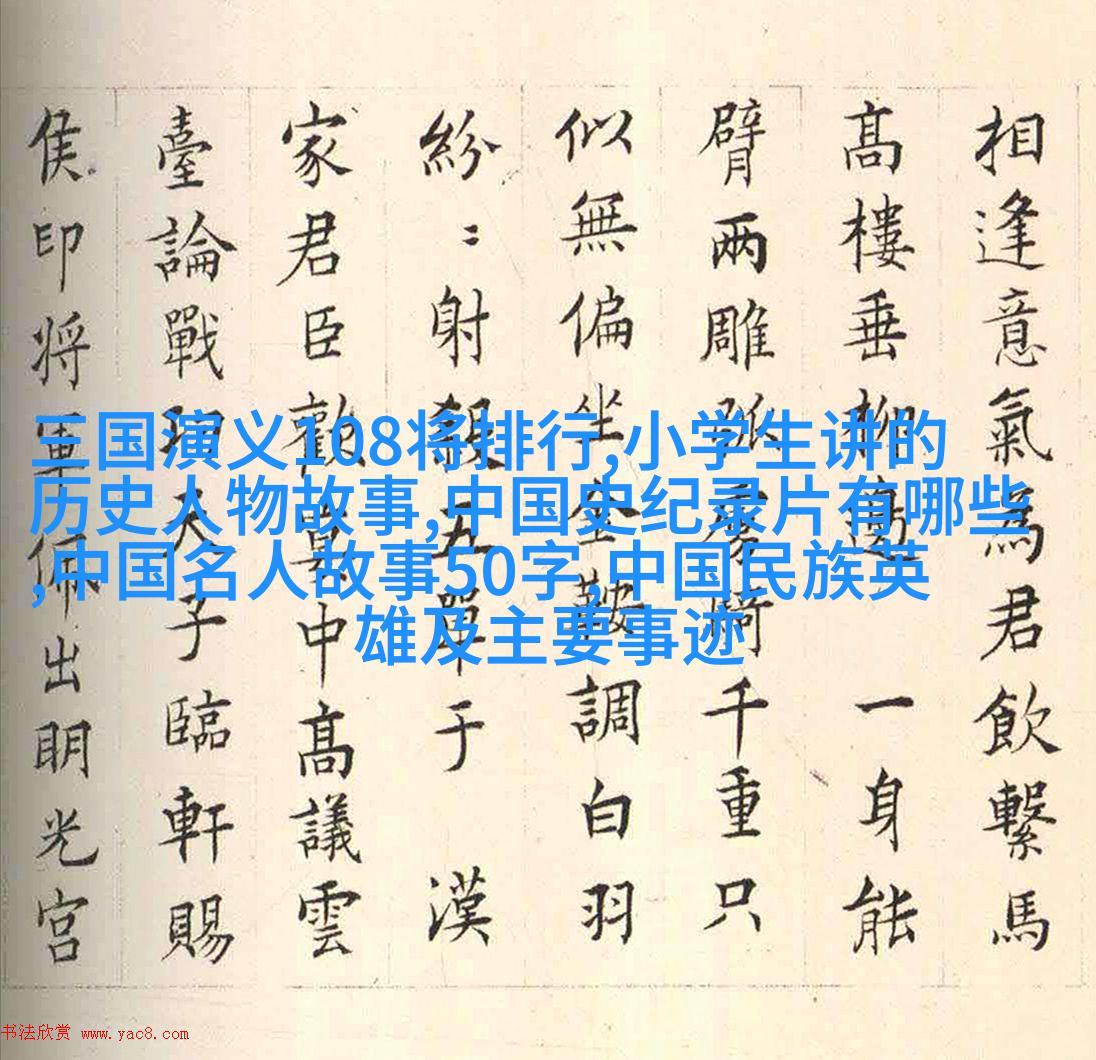 相逢意氣為君飲繫馬
髙樓垂柳邊 一身能
臂兩雕弧虜騎千重只
似無偏坐金鞍調白羽
紛〻射殺五單于 漢
家君臣歡宴中髙議雲
臺論戰功天子臨軒賜
侯印将軍佩出明光宮
三国演义108将排行,小学生讲的
历史人物故事,中国史纪录片有哪些
,中国名人故事50字,中国民族英
雄及主要事迹
书法欣赏 www.yac8.com